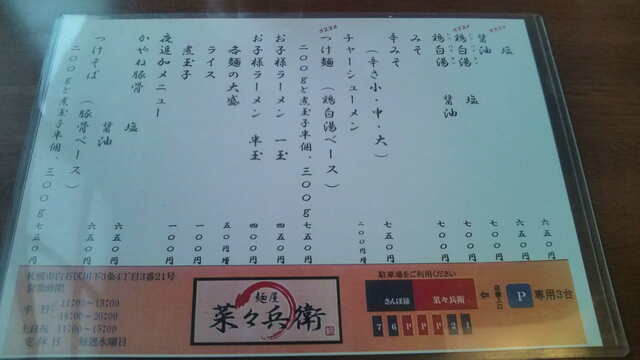 塩 六五〇円
オススメ
醤油 六五〇円
オススメ
鶏白湯 塩 七〇〇円
鶏白湯 醤油 七〇〇円
みそ 七〇〇円
辛みそ
(辛さ小・中・大) 七五〇円
チャーシューメン 二〇〇円増
オススメ
つけ麺 (鶏白湯ベース)
二〇〇gと煮玉子半個、三〇〇g 七五〇円
お子様ラーメン 一玉 四五〇円
お子様ラーメン 半玉 四〇〇円
各麺の大盛 五〇円増
ライス 一〇〇円
煮玉子 一〇〇円
夜追加メニュー
かやね豚骨 塩 六五〇円
醤油 六五〇円
つけそば (豚骨ベース)
二〇〇gと煮玉子半個、三〇〇g 七五〇円
札幌市白石区川下3条4丁目3番21号
営業時間
平日 11:00~15:00
18:00~20:00
土日祝 11:00~15:00
定休日 毎週水曜日
麺屋
菜々兵衛
駐車場をご利用ください
さんぱ様
菜々兵衛
7 6 P P P 2 1
P 専用3台